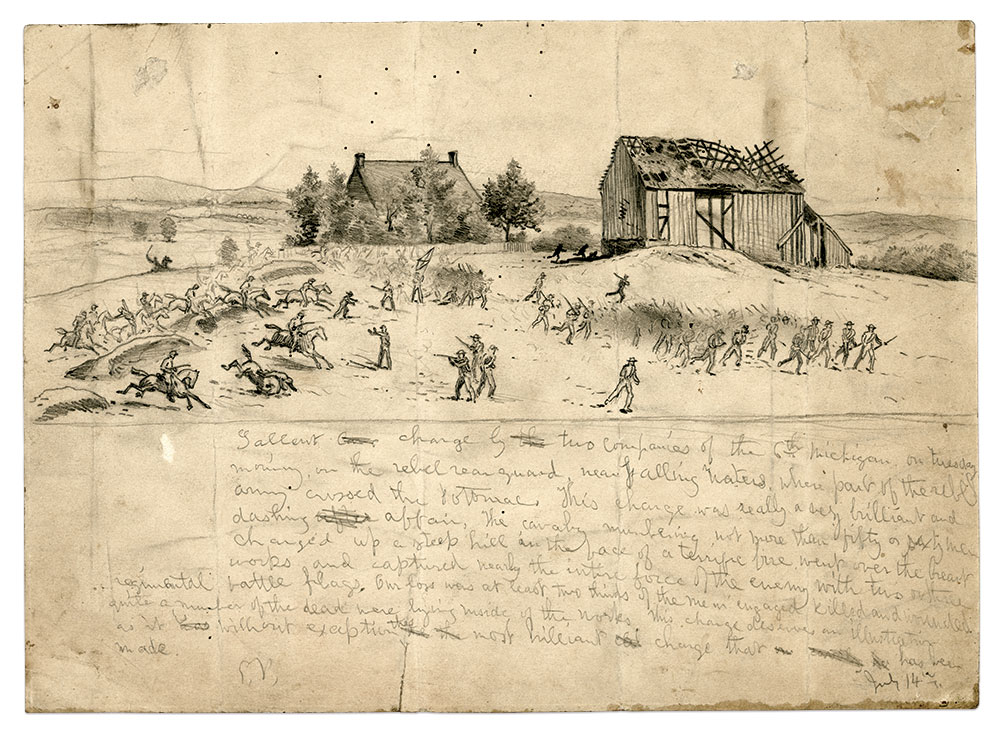 Gallent charge by two companies of the 6th Michigan, on tuesday
morning, on the rebel rear guard, near Falling Waters, where part of the rebel
army crossed the Potomac. This charge was really a very brilliant and
dashing affair, The cavalry numbering not more than fifty or sixty men
charged up a steep hill in the face of a terrific fire went over the breast
works and captured nearly the entire force of the enemy with two or three
regimental battle flags. Our loss was at least two thirds of the men engaged killed and wounded.
quite a number of the dead were lying inside of the works. This charge deserves an illustration
as it without exception most brilliant charge that has been
made.
July 14